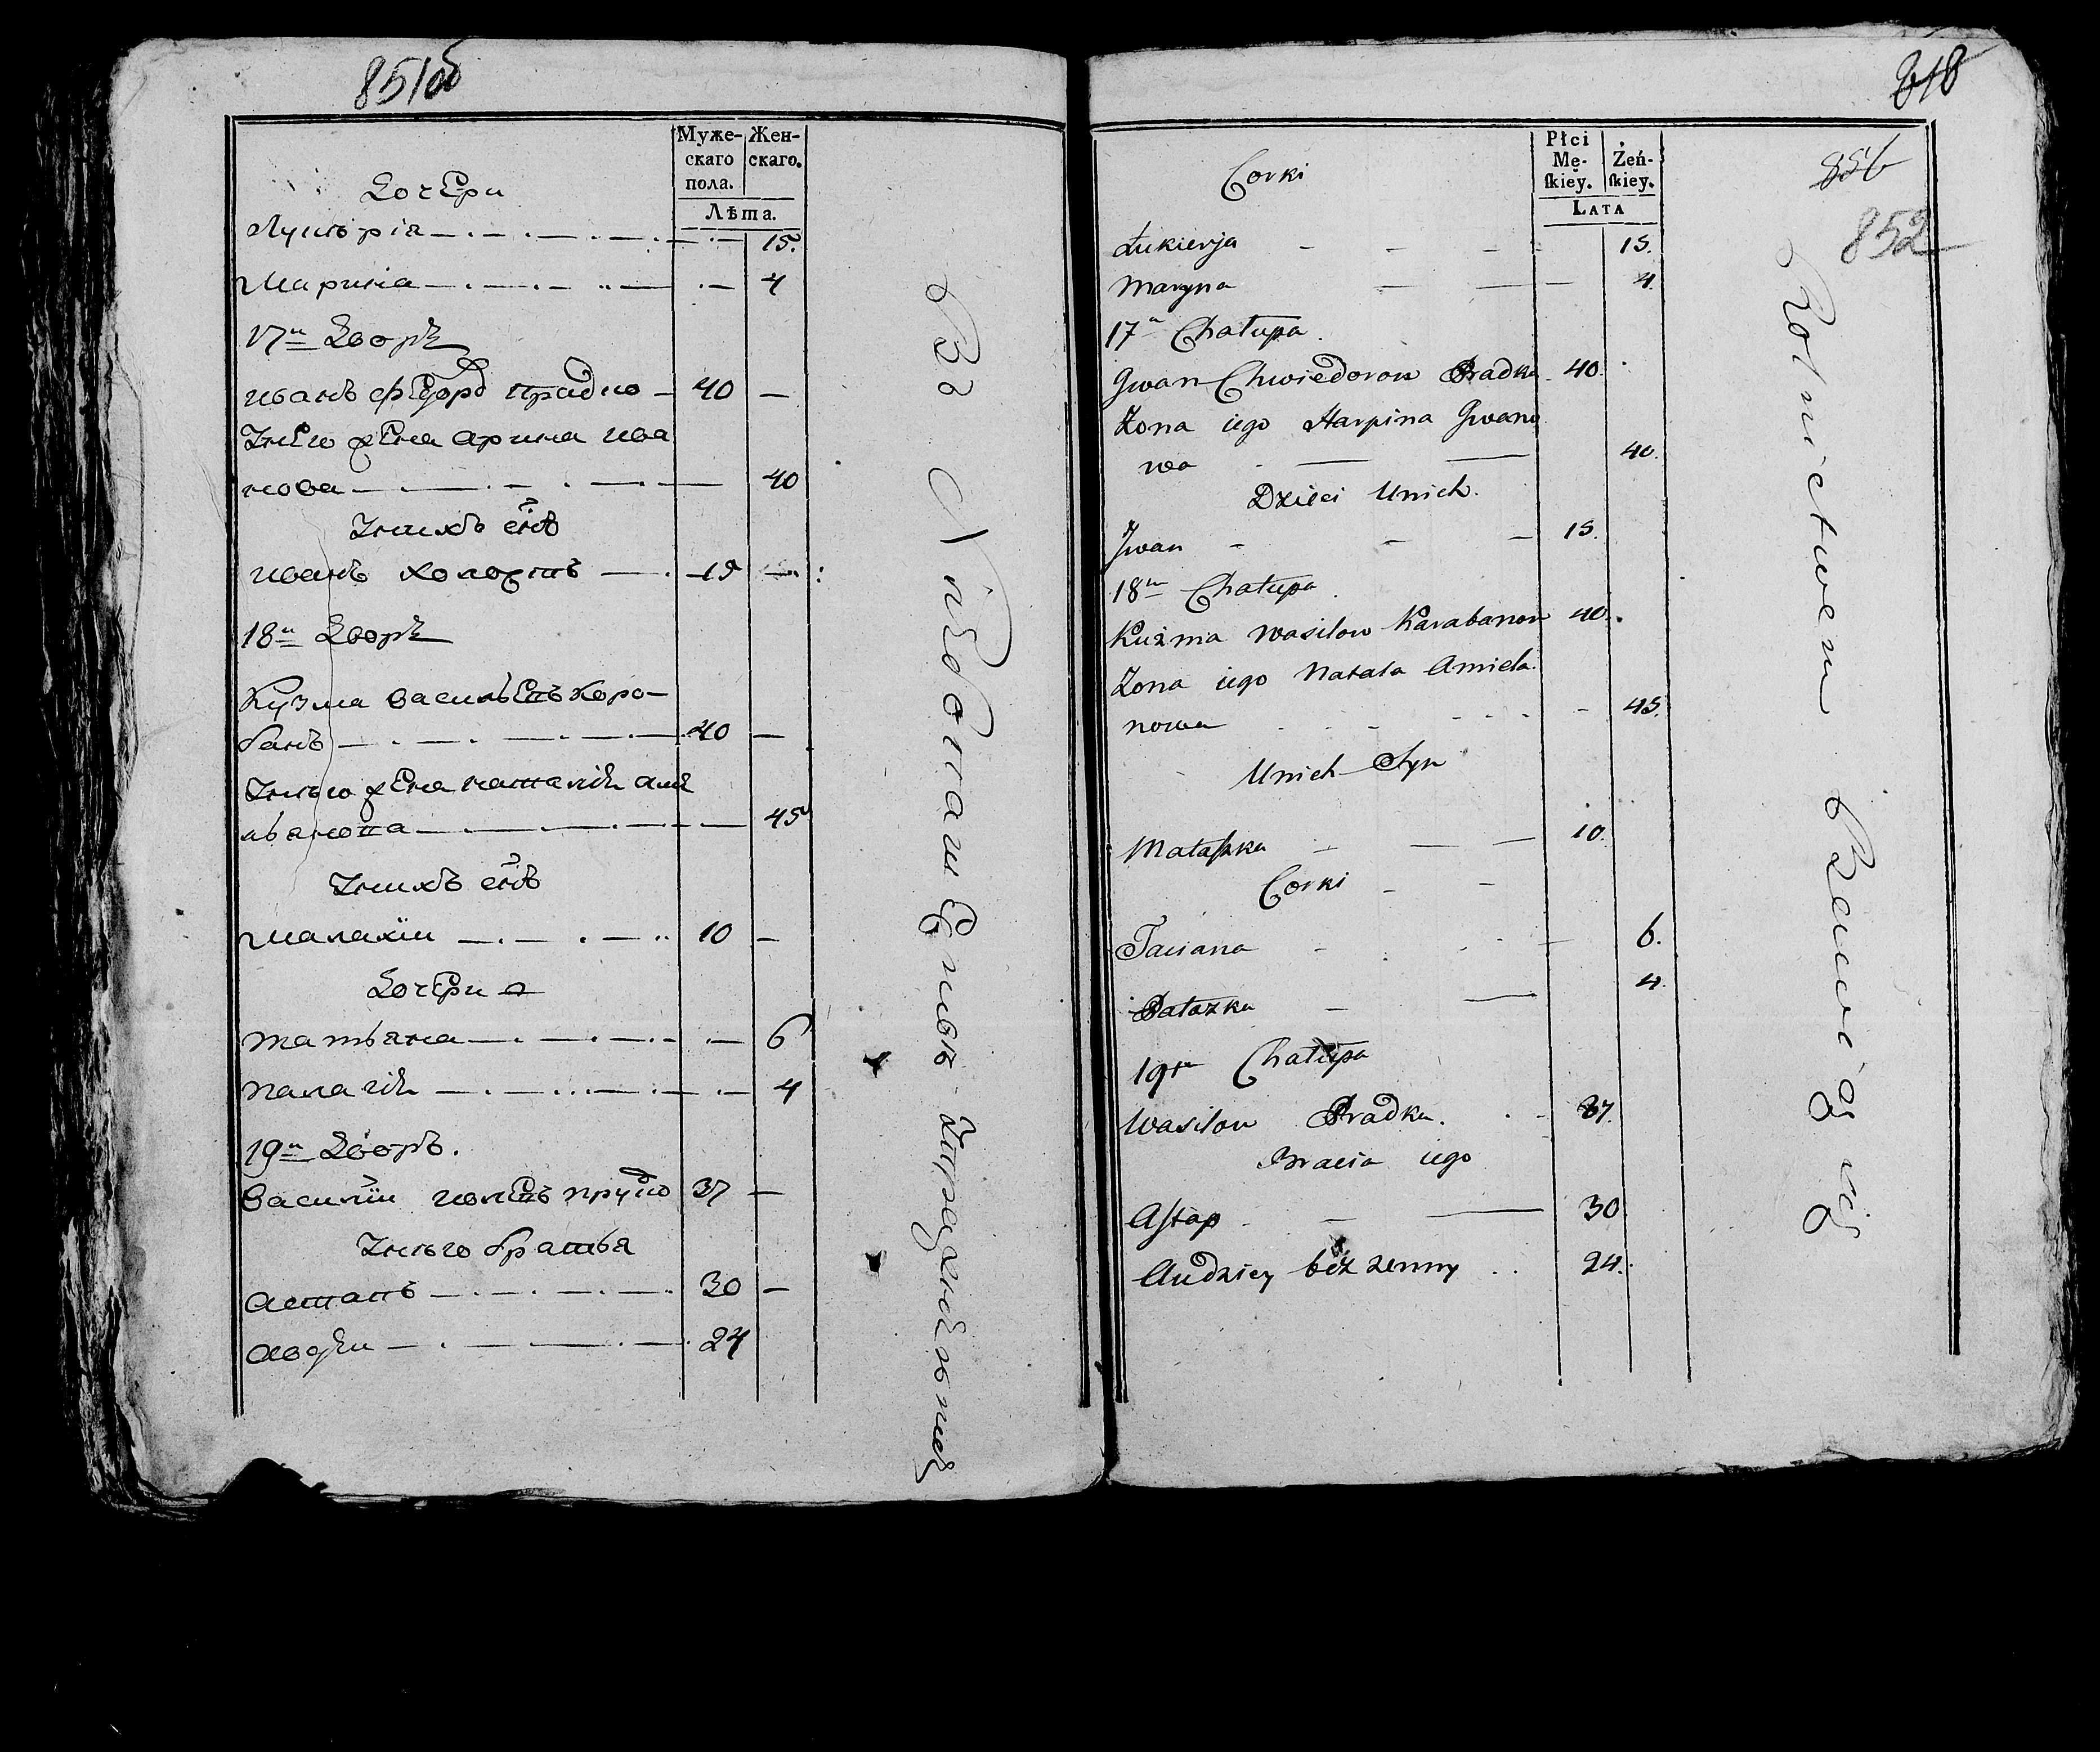 851об
Муже-
скаго
пола.
Жен-
скаго.
Лѣта.
Дочери
Лукѣрія 15.
Марина 4
17й Дворъ
иванъ федоръ прадко 40
Унего жена арина ива
нова 40
Унихъ снъ
иванъ холостъ 15
18й Дворъ
Кузма василъевъ Коро-
банъ 40
Унъго жена наталія аме
льянова 45
Унихъ снъ
малахіи 10
Дочери
татьяна 6
палагія 4
19й Дворъ.
василіи 37
Унъго братья
астапъ 30
авдѣи 24
818
856
852
Płci
Mę-
skiey.
Żeń-
skiey.
LATA
Corki
Łukierja 15.
Maryna 4.
17a Chałupa
Jwan Chwiedorow Pradka 40.
Zona iego Harpina Jwano
wa 40.
Dzieci Unich.
Jwan 15.
18ta Chałupa
Kuźma Wasilow Karabanow 40.
Zona iego Natala Amiela.
nowa 45.
Unich Syn
Matafzka 10.
Corki
Taciana 6.
Pałazka 4.
19ta Chałupa
Wasilow Pradka. 37.
Bracia iego
Astap 30
Audziey bez zenny 24.
Rolnictwem Bawią się